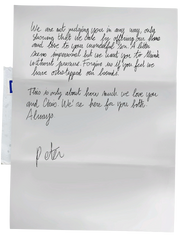 We are not judging you in any way, only
sharing that we care by offering our home
and love to your wonderful son. A little
seems improvised but we want you to think
without pressure. Forgive us if you feel we
have overstepped our bounds.
This is only about how much we love you
and Clow. We're here for you both.
Always
Peter